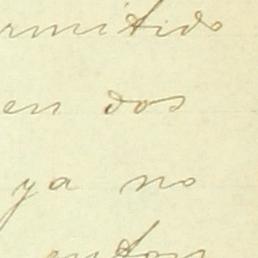 rmitido
en dos
ya no